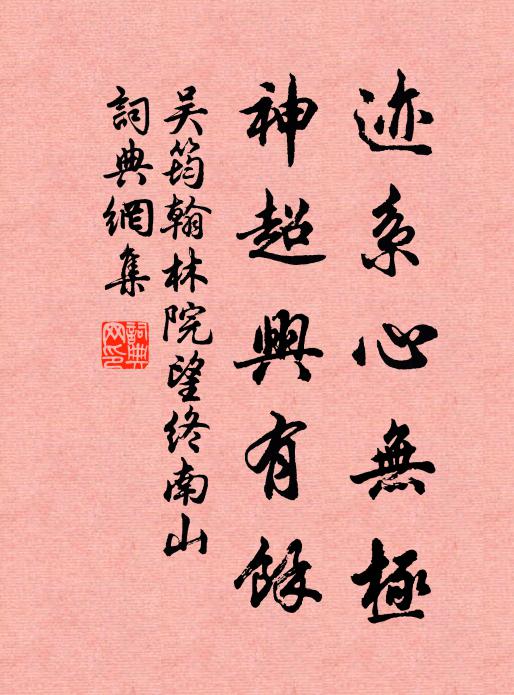 迹系心無極
神超興有餘
吴筠翰林院望終南山
詞典網集
詞典网印